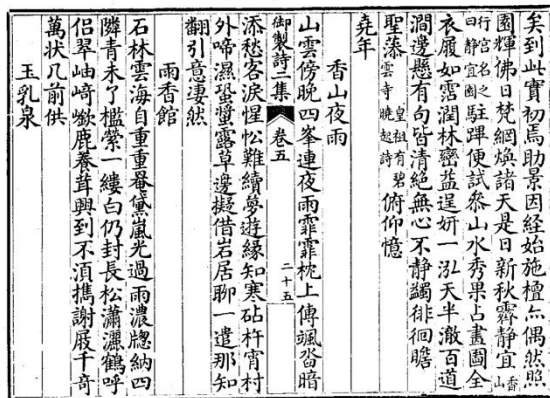 矣到此實初焉助景因經始施檀亦偶然照
園輝佛日梵網煥諸天是日新秋霽静宜香山
行宮名之曰静宜園駐蹕便試叅山水秀果占畫圖全
衣履如霑潤林巒益逞妍一泓天半瀲百道
澗邊懸有句皆清絶無心不静蠲徘徊瞻
聖藻皇祖有碧雲寺晚詩俯仰憶
堯年
香山夜雨
山雲傍晚四峯連夜雨霏霏枕上傳颯沓暗
御製詩二集 卷五 二十五
添愁客淚惺忪難續夢遊緣知寒砧杵宵村
外啼濕蛩螿露草邊擬借岩居聊一遣那知
翻引意凄然
雨香館
石林雲海自重重黛嵐光過雨濃牕納四
隣青未了檻縈一縷白仍封長松瀟灑鶴呼
侶翠岫﨑嶔鹿養茸興到不須攜謝屐千奇
萬狀几前供
玉乳泉